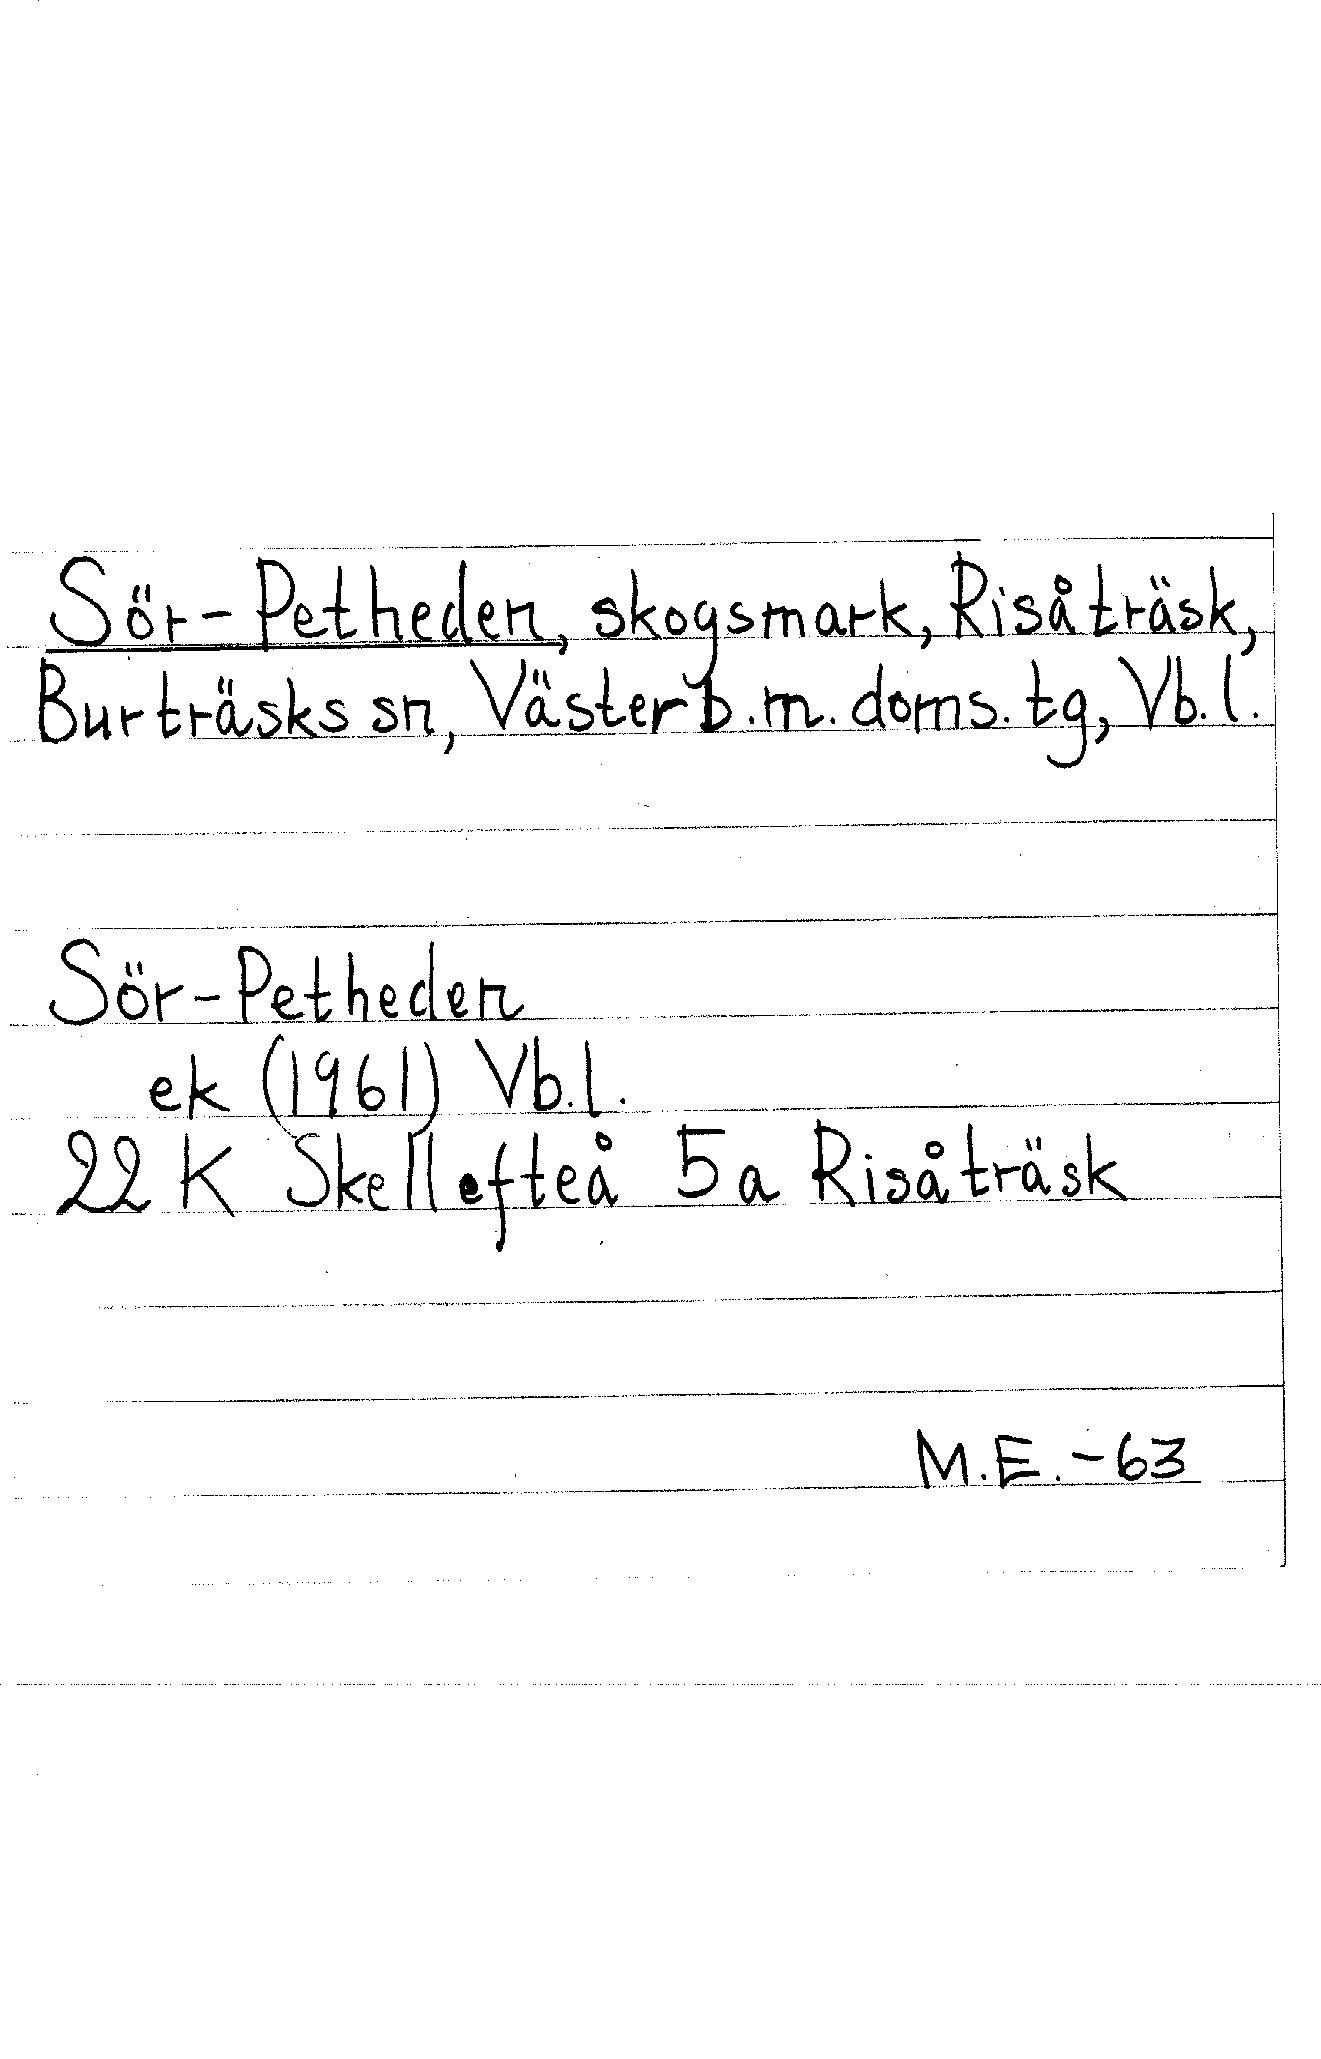 Sör-Petheden, skogsmark, Risåträsk,
Burträsks sn, Västerb.m. doms. tg, Vb. l.
Sör-Petheden
ek (1961) Vb. l.
22 K Skellefteå 5a Risåträsk
M.E. -63